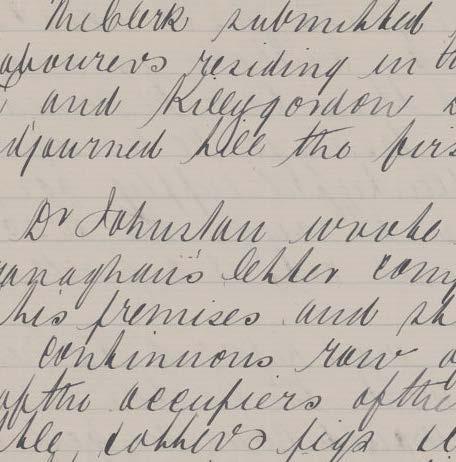 The Clerk submitted
abourers residing in th
and Killygordon
djourned till the firs
Dr Johnston wrote
anaghan's letter comp
his premises and sh
continuous row o
of the occupiers of the
cotters pigs